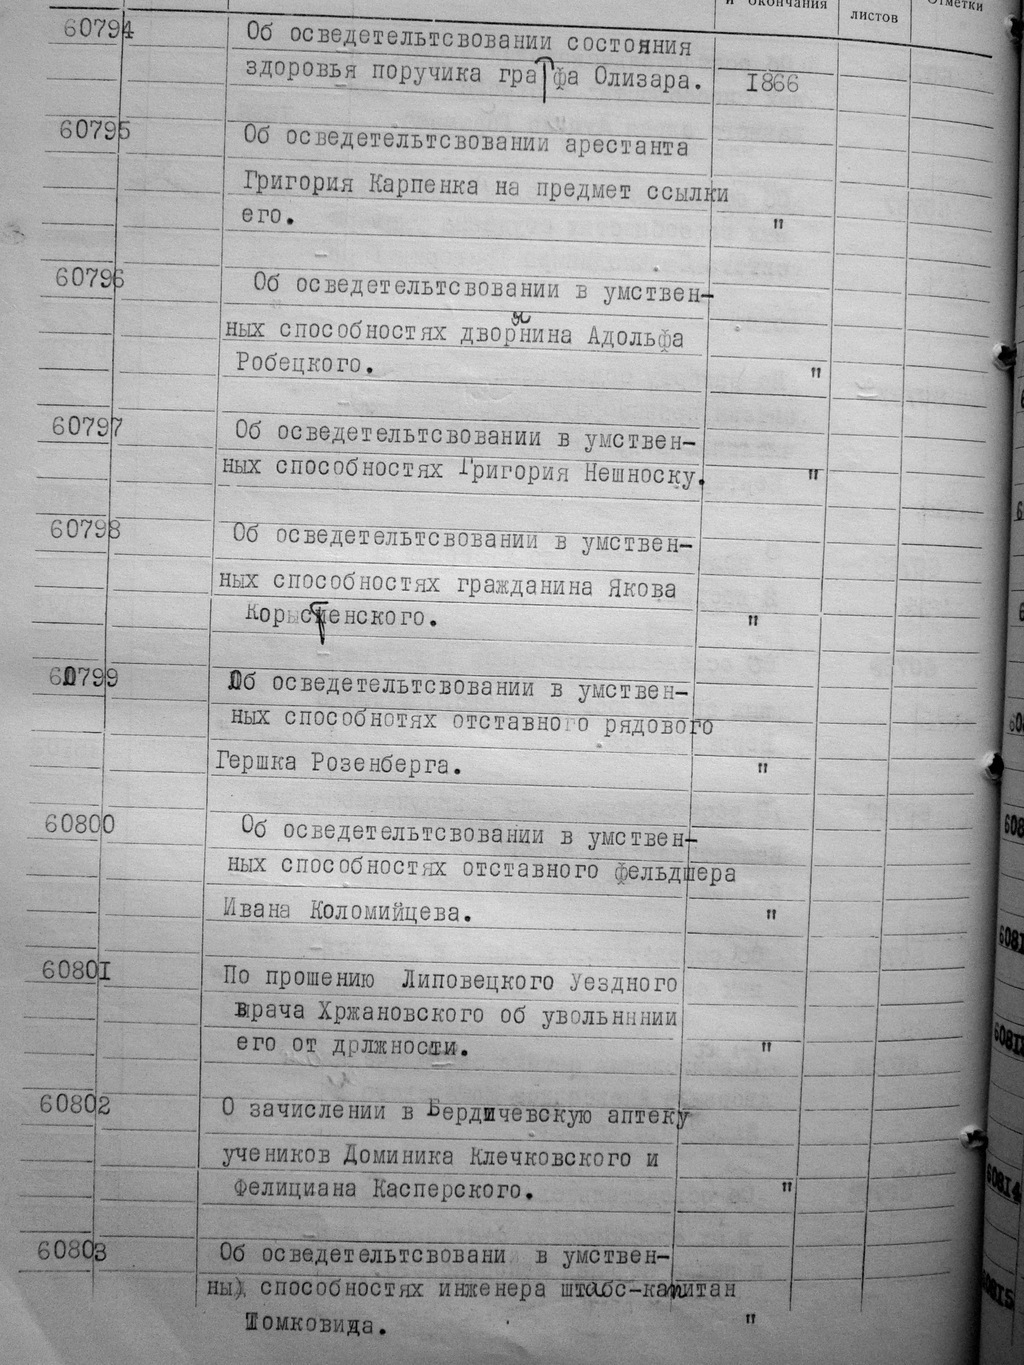 и окончания
листов
Отметки
60794 Об осведетельтсвовании состояния
здоровья поручика графа Олизара. 1866
60795 Об осведетельтсвовании арестанта
Григория Карпенка на предмет ссылки
его. "
60796 Об осведетельтсвовании в умствен-
ных способностях дворянина Адольфа
Робецкого. "
60797 Об осведетельтсвовании в умствен-
ных способностях Григория Нешноску. "
60798 Об осведетельтсвовании в умствен-
ных способностях гражданина Якова
"
60799 Об осведетельтсвовании в умствен-
ных способнотях отставного рядового
Гершка Розенберга. "
60800 Об осведетельтсвовании в умствен-
ных способностях отставного фельдшера
Ивана Коломийцева. "
60801 По прошению Липовецкого Уездного
врача Хржановского об увольнннии
его от дрлжности. "
60802 О зачислении в Бердичевскую аптеку
учеников Доминика Клечковского и
Фелициана Касперского. "
60803 Об осведетельтсвовани в умствен-
ных способностях инженера штабс-капитан
Томковида. "